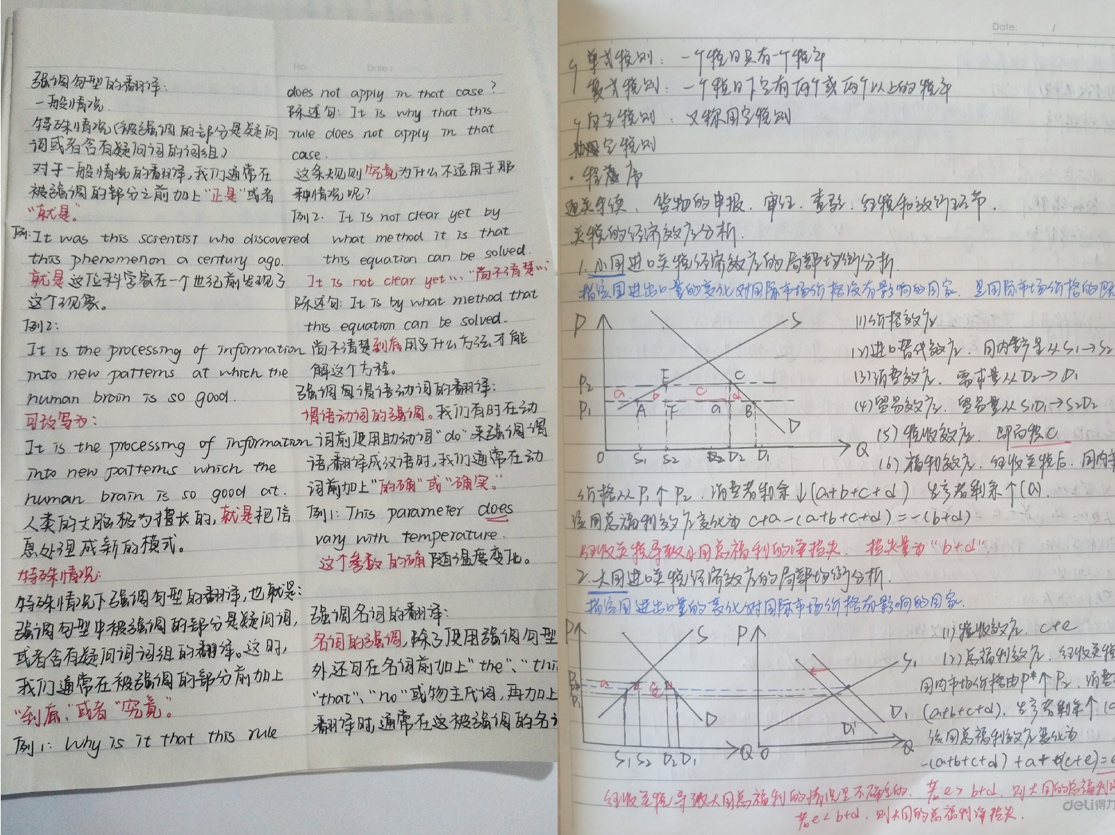 No.
Date
强调句型的翻译:
一般情况
特殊情况(被强调的部分是疑问
词或者含有疑问词的词组)
对于一般情况的翻译,我们通常在
被强调的部分之前加上"正是"或者
"就是"
例: It was this scientist who discovered
this phenomenon a century ago.
就是这位科学家在一个世纪前发现了
这个现象。
例2:
It is the processing of information
into new patterns at which the
human brain is so good.
可改写为:
It is the processing of information
into new patterns which the
human brain is so good at.
人类的大脑极为擅长的,就是把信
息处理成新的模式。
特殊情况:
特殊情况下强调句型的翻译,也就是:
强调句型中被强调的部分是疑问词,
或者含有疑问词词组的翻译。这时,
我们通常在被强调的部分前加上
"到底"或者"究竟"。
例1: Why is it that this rule
does not apply in that case?
陈述句: It is why that this
rule does not apply in that
case.
这条规则究竟为什么不适用于那
种情况呢?
例2. It is not clear yet by
what method it is that
this equation can be solved.
It is not clear yet... "尚不清楚..."
陈述句: It is by what method that
this equation can be solved.
尚不清楚到底用了什么方法才能
解这个方程。
强调句谓语动词的翻译:
谓语动词的强调。我们有时在动
词前使用助动词"do"来强调谓
语翻译成汉语时,我们通常在动
词前加上"的确"或"确实"。
例1: This parameter does
vary with temperature.
这个参数的确随温度变化。
强调名词的翻译:
名词的强调,除了使用强调句型
外还可在名词前加上"the"、"thi
"that"、"no"或物主代词,再加上
翻译时,通常在这被强调的名
Date. /
单式税则: 一个税目只有一个税率
复式税则: 一个税目下含有两个或两个以上的税率
自主税则: 又称国定税则
定税则
·程序
通关手续、货物的申报、审证、查验、征税和放行环节.
关税的经济效应分析.
1.小国进口关税经济效应的局部均衡分析
指该国进出口量的变化对国际市场价格没有影响的国家,是国际市场价格的
P S (1)价格效应
(2)进口替代效应, 国内产量从S1→S2
(3)消费效应, 需求量从D2→D1
P2 E C (4)贸易效应, 贸易量从S1D1→S2D2
a b c d
P1 A F a B (5)税收效应, 即面积C
D
O S1 S2 D2 D1 Q (6)福利效应, 征收关税后, 国内
价格从P1↑P2, 消费者剩余↓(a+b+c+d) 生产者剩余↑(a).
该国总福利效应变化为 c+a-(a+b+c+d)=-(b+d)
征收关税导致小国总福利的净损失, 损失量为"b+d"
2.大国进口关税经济效应的局部均衡分析.
指该国进出口量的变化对国际市场价格有影响的国家.
P S P (1)税收效应, c+e
S1 (2)总福利效应, 征收关税
国内市场价格由P*↑P2, 消费
D D1 D1 (a+b+c+d), 生产者剩余↑(a
S1 S2 D2 D1 Q O Q 该国总福利效应变化为
-(a+b+c+d)+a+(c+e)=e
征收关税导致大国总福利的情况是不确定的. 若e>b+d, 则大国的总福利
若e<b+d, 则大国的总福利净损失.
deli得力